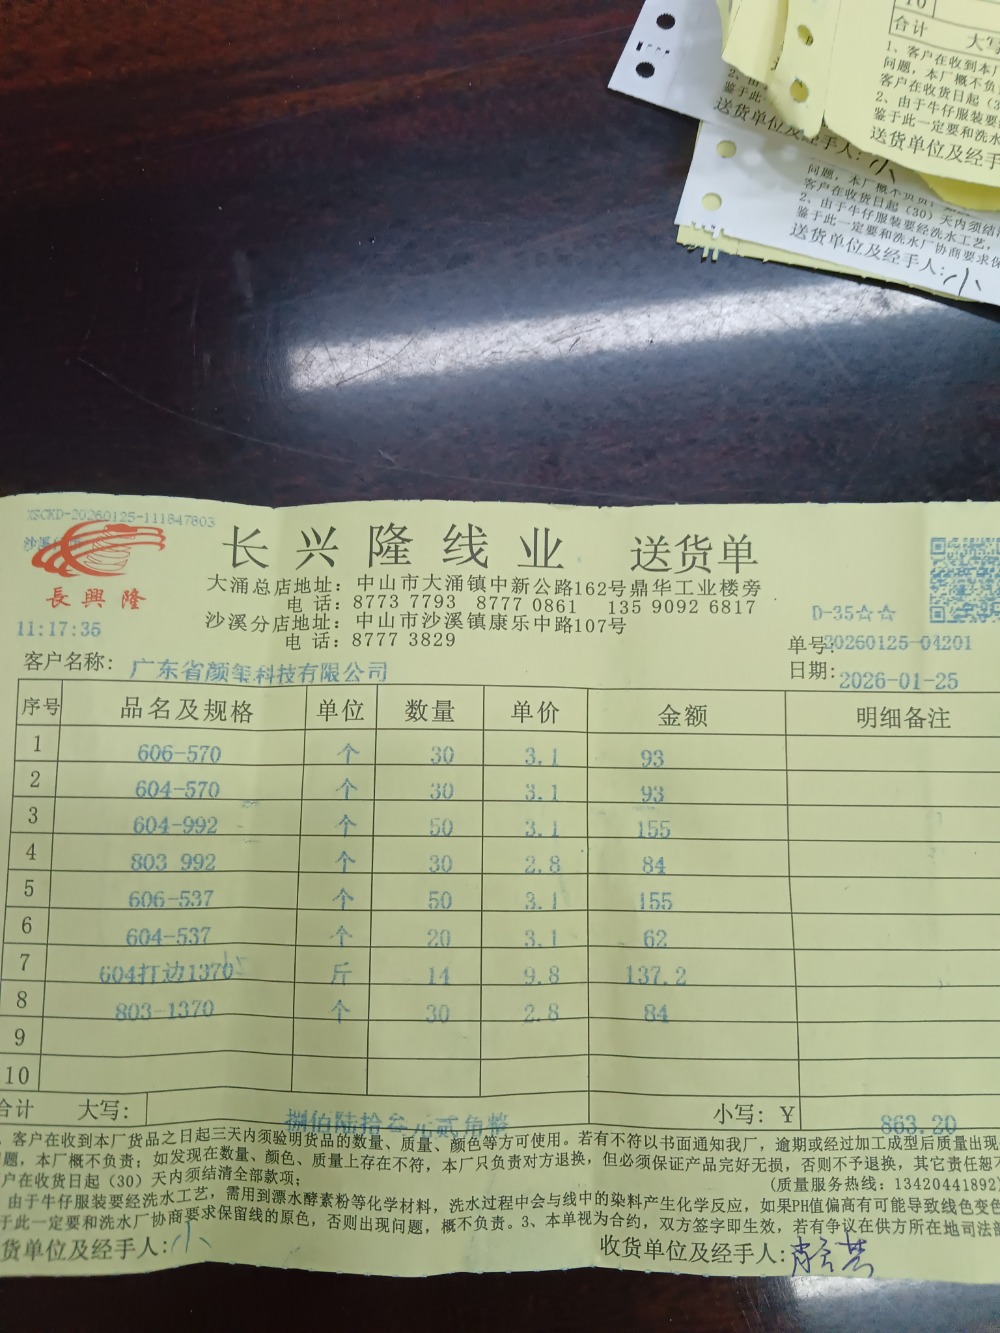 10
合计 大写
1、客户在收到本厂
问题，本厂概不负
客户在收货日起（3
2、由于牛仔服装要
鉴于此一定要和洗水
送货单位及经手
2、由
鉴于此
送货单位及经手人:小
问题，本厂概不负责；
客户在收货日起（30）天内须结清
2、由于牛仔服装要经洗水工艺，
鉴于此一定要和洗水厂协商要求保
送货单位及经手人:小
XSCKD-20260125-111847803
長興隆
11:17:35
长兴隆线业 送货单
大涌总店地址：中山市大涌镇中新公路162号鼎华工业楼旁
电 话：8773 7793 8777 0861 135 9092 6817
沙溪分店地址：中山市沙溪镇康乐中路107号
电 话：8777 3829
D-35☆☆
单号:20260125-04201
客户名称：广东省颜玺科技有限公司
日期:2026-01-25
序号 品名及规格 单位 数量 单价 金额 明细备注
1 606-570 个 30 3.1 93
2 604-570 个 30 3.1 93
3 604-992 个 50 3.1 155
4 803 992 个 30 2.8 84
5 606-537 个 50 3.1 155
6 604-537 个 20 3.1 62
7 604打边1370 斤 14 9.8 137.2
8 803-1370 个 30 2.8 84
9
10
合计 大写： 捌佰陆拾叁元贰角整 小写：￥ 863.20
、客户在收到本厂货品之日起三天内须验明货品的数量、质量、颜色等方可使用。若有不符以书面通知我厂，逾期或经过加工成型后质量出现
题，本厂概不负责；如发现在数量、颜色、质量上存在不符，本厂只负责对方退换，但必须保证产品完好无损，否则不予退换，其它责任恕不
户在收货日起（30）天内须结清全部款项； (质量服务热线：13420441892)
由于牛仔服装要经洗水工艺，需用到漂水酵素粉等化学材料，洗水过程中会与线中的染料产生化学反应，如果PH值偏高有可能导致线色变色
于此一定要和洗水厂协商要求保留线的原色，否则出现问题，概不负责。3、本单视为合约，双方签字即生效，若有争议在供方所在地司法部
货单位及经手人:小 收货单位及经手人: